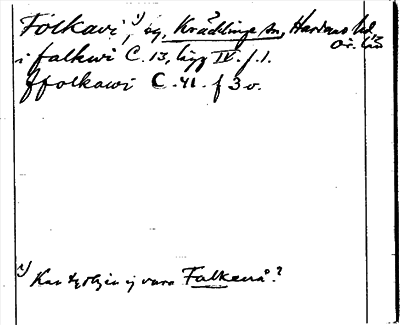 Folkavi, ¹) äg, Krädlinge sn, Hardens hd.
?
Ör. län
i falkwi C. 13, lägg IV. f. 1.
ffolkawi C. 41. f 3 v.
¹) Kan tydligen ej vara Falkenå?